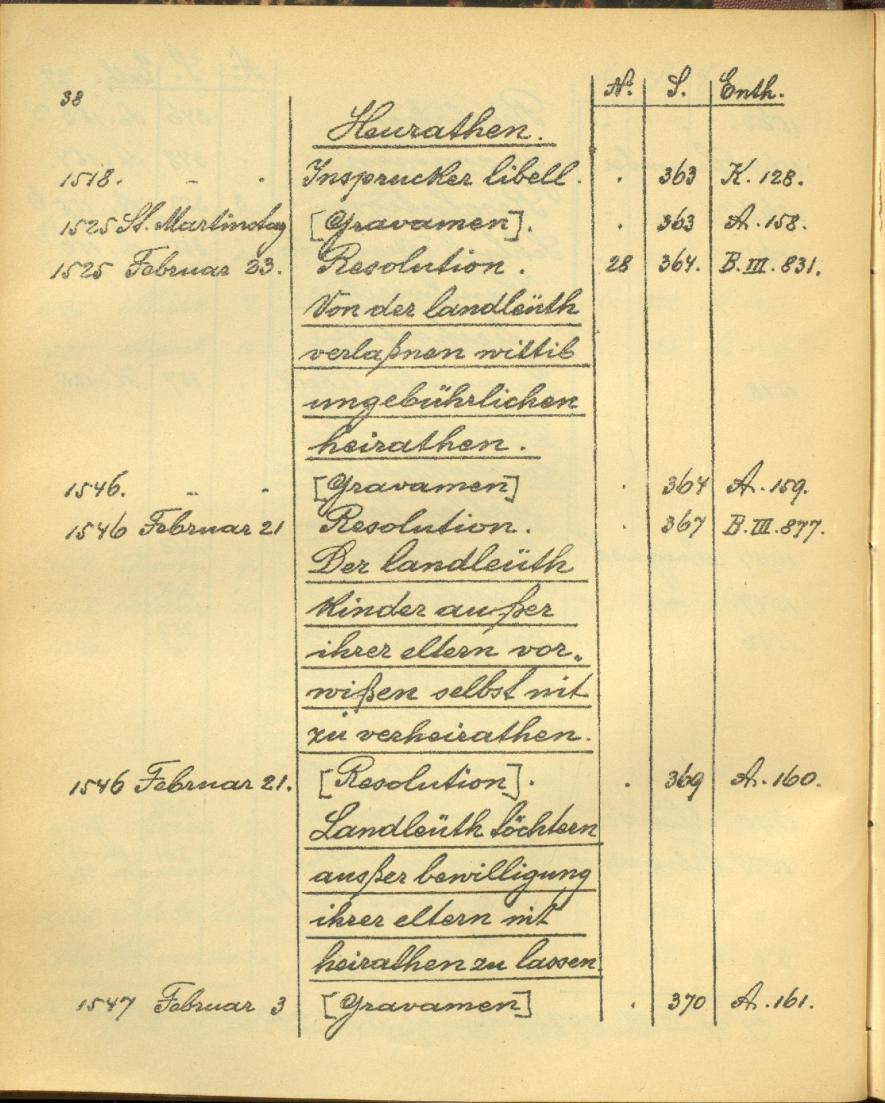 38
Nº. S. Enth.
Heurathen.
1518. - . Insprucker libell. . 363 K. 128.
1525 St. Martinstag [Gravamen]. . 363 A. 158.
1525 Februar 23. Resolution. 28 364. B. III. 831.
Von der landleüth
verlaßnen wittib
ungebührlichen
heirathen.
1546. - . [Gravamen] . 364 A. 159.
1546 Februar 21 Resolution. . 367 B. III. 877.
Der landleüth
kinder außer
ihrer eltern vor„
wißen selbst nit
zu verheirathen.
1546 Februar 21. [Resolution]. . 369 A. 160.
Landleüth töchtern
außer bewilligung
ihrer eltern nit
heirathen zu lassen.
1547 Februar 3 [Gravamen] . 370 A. 161.